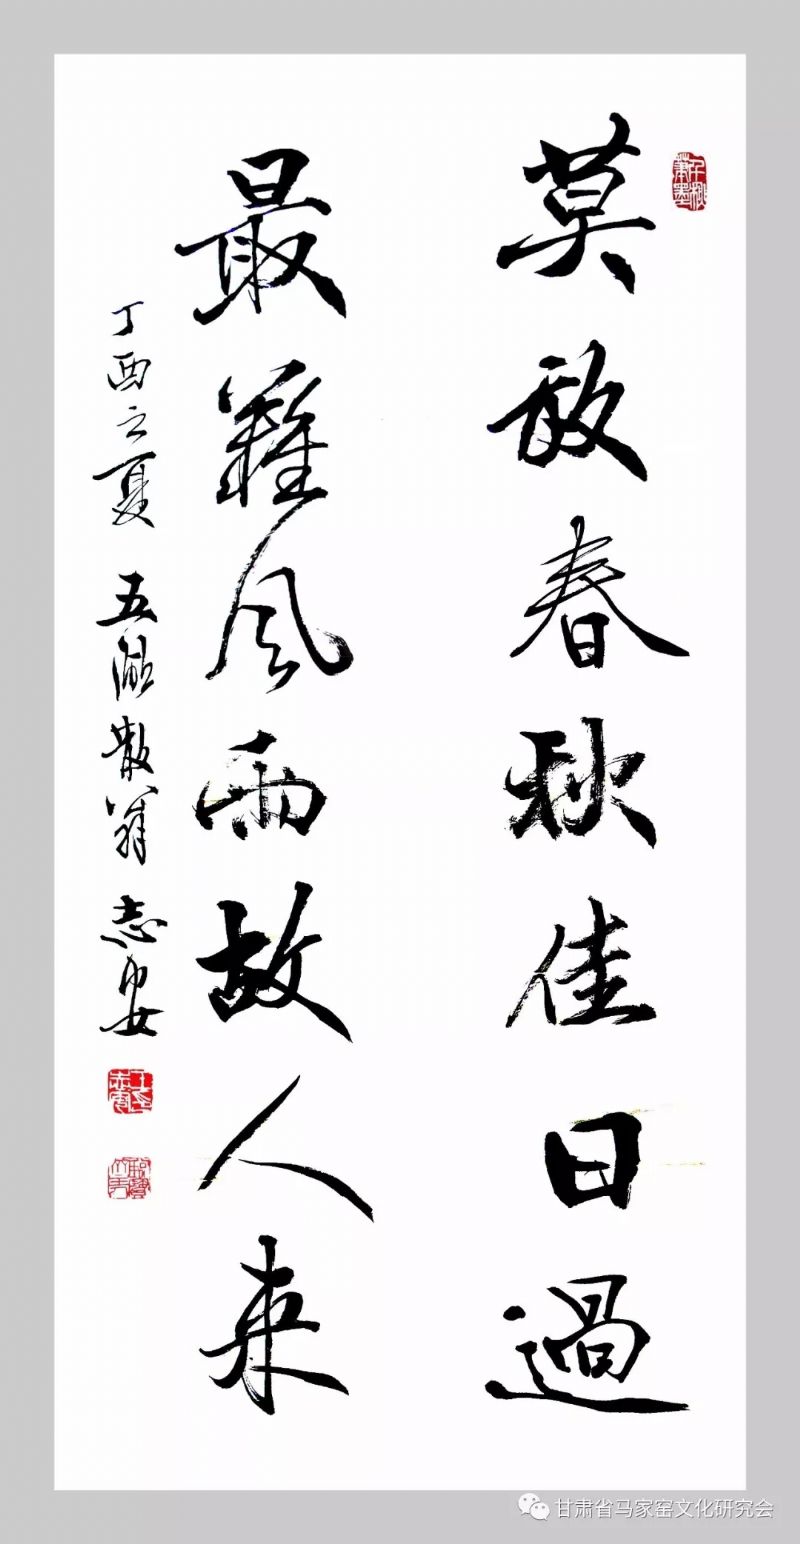 莫放春秋佳日過
最難风雨故人来
丁酉之夏 五湖散翁 志安
甘肃省马家窑文化研究会